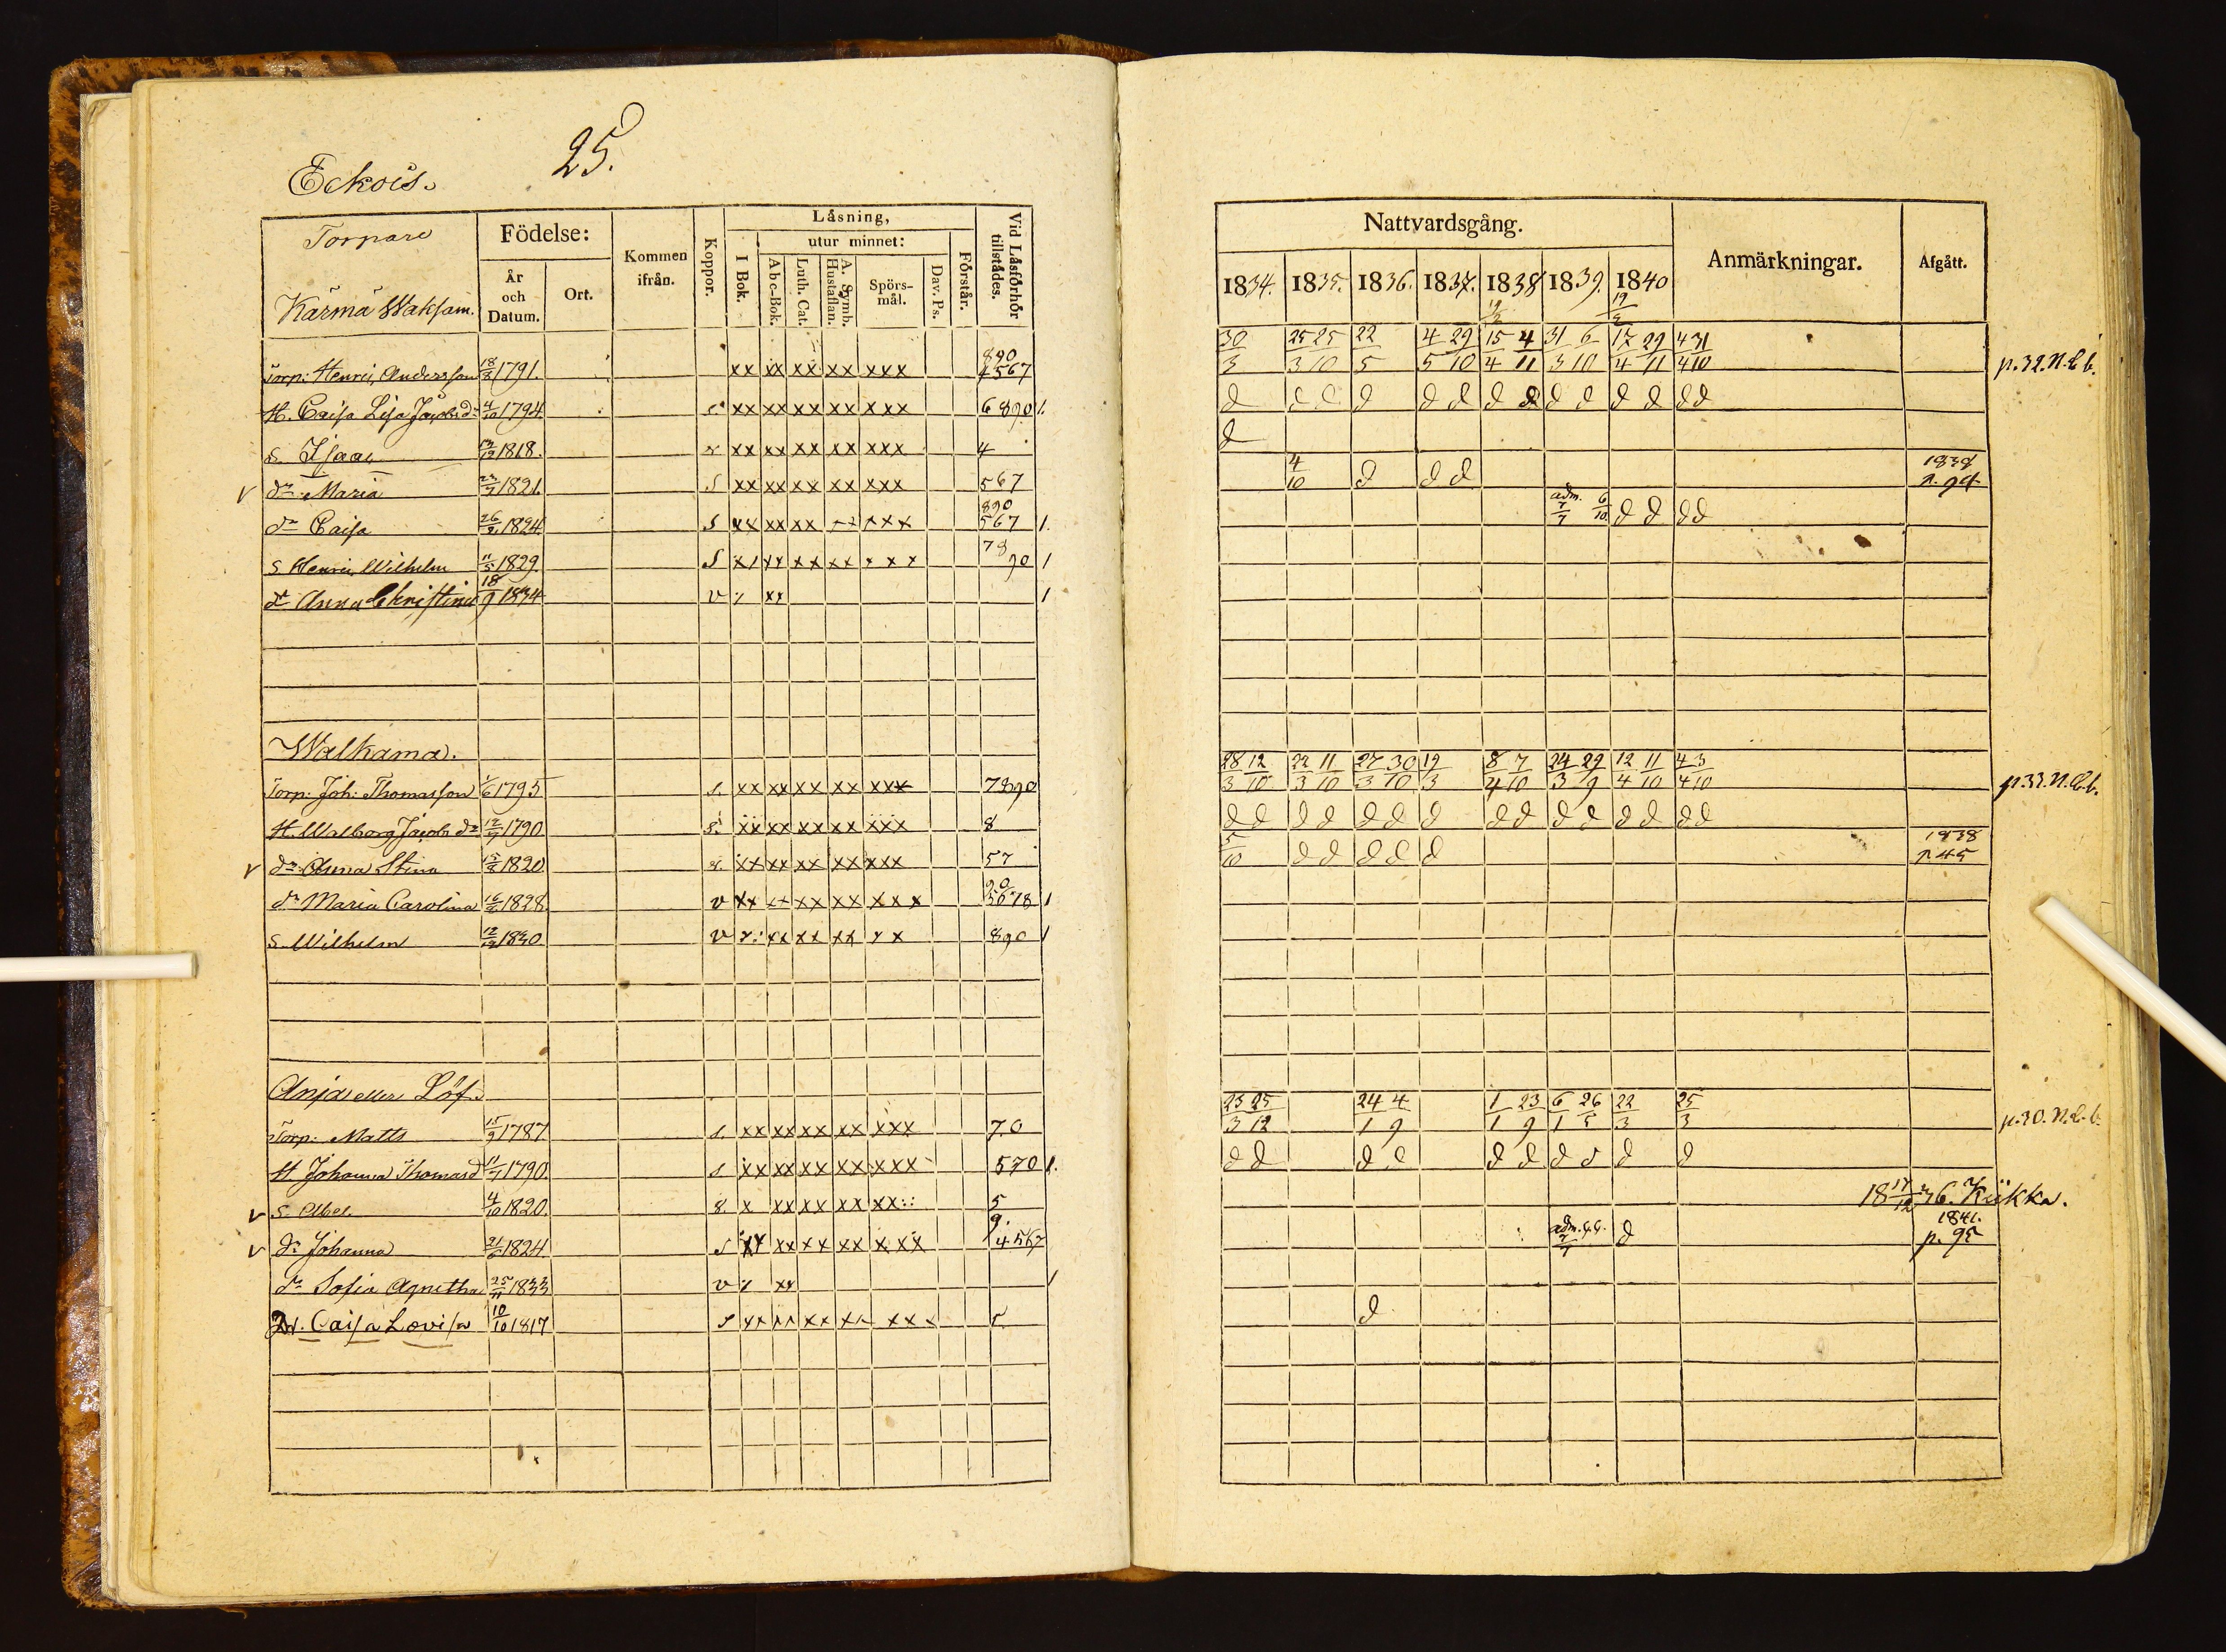 25.
Eckois.
Torpare
Kärmä Waksam.
Födelse:
År och Datum.
Ort.
Kommen ifrån.
Koppor.
Läsning,
I Bok.
utur minnet:
Abc-Bok.
Luth. Cat.
A. Symb. Hustaflan.
Spörs-mål.
Dav. Ps.
Förstår.
Vid Läsförhör tillstädes.
Torp: Henric Andersson 18/8 1791. xx xx xx xx xxx 890 4567
H. Caisa Lisa Jacobsd:r 4/10 1794 s. xx xx xx xx xxx 6890 1.
S. Isaac 1818. xx xx xx xx xxx 4
v d:r Maria 1821. s xx xx xx xx xxx 567
d:r Caisa 1824. s xx xx xx xx xxx 890 567 1.
S Henric Wilhelm 11/5 1829 s xx xx xx xx xxx 78 90 1
d:r Anna Christina 18/9 1834 v xx 1
Walkama.
Torp: Joh: Thomasson 1/6 1795 s. xx xx xx xx xxx 7890
H. Walborg Jacobs d:r 1790 s. xx xx xx xx xxx 8
v d:r Anna Stina 1820 s. xx xx xx xx xxx 57
d:r Maria Carolina 1828. v xx xx xx xx xxx 90 5678 1
S. Wilhelm 1830 v xx xx xx xx 890 1
Anja eller Löf.
Torp: Matts 15/9 1787 s. xx xx xx xx xxx 7.0
H. Johanna Thomasd 1790. s xx xx xx xx xxx 570 1.
v S. Abel 4/10 1820. s. x xx xx xx xx 5
v d:r Johanna 21/6 1824 s xx xx xx xx xxx 9. 4567
d:r Sofia Agnetha 25/11 1833 v xx 1
Caisa Lovisa 10/10 1817 s xx xx xx xx xxx 5.
Nattvardsgång.
Anmärkningar.
Afgått.
1834. 1835. 1836. 1837. 1838 1839. 1840
30/3 25/3 25/10 22/5 4/5 29/10 15/4 4/11 31/3 6/10 17/4 29/11 4/4 31/10 p.32.N.C.b.
d d d d d d d d d d d d d d
d
4/10 d d d 1839
adm. 7/7 6/10 d d d d
28/3 12/10 22/3 11/10 27/3 30/10 19/3 8/4 7/10 24/3 29/9 12/4 11/10 4/4 3/10 p.33.N.C.b.
d d d d d d d d d d d d d d d
5/10 d d d d d 1838 p.45
25/3 25/12 24/1 4/9 1/1 23/9 6/1 26/5 22/3 25/3 p.30.N.C.b.
d d d d d d d d d d
18 17/12 36. Kiikka.
adm. 7/7 d 1841. p. 95
d